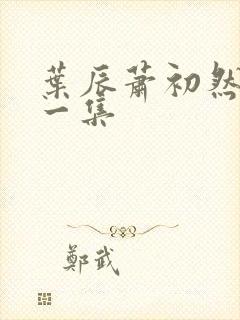 葉辰蕭初然
一集
鄭武